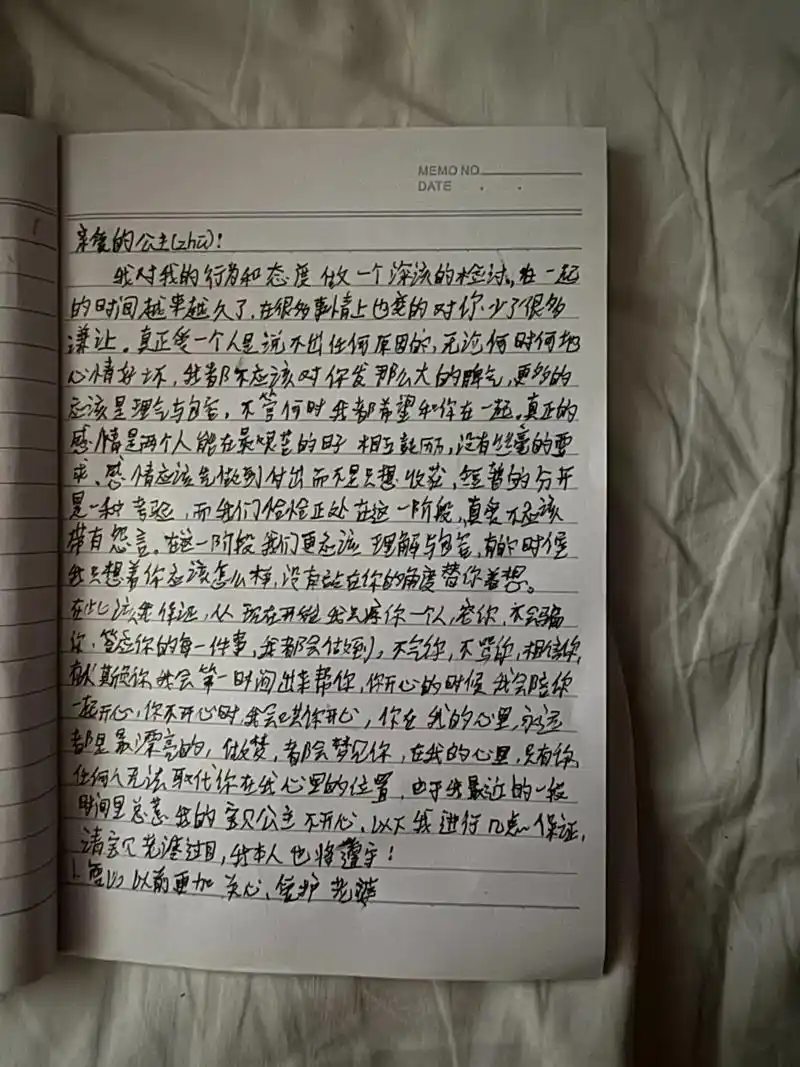 MEMO NO.
DATE . .
亲爱的公主(zhū)!
我对我的行为和态度做一个深深的检讨。在一起
的时间越来越久了,在很多事情上也变的对你少了很多
谦让。真正爱一个人是说不出任何原因的,无论何时何地
心情好坏,我都不应该对你发那么大的脾气,更多的
应该是理气与包容,不管何时我都希望和你在一起。真正的
感情是两个人能在最艰苦的日子相互鼓励,没有丝毫的要
求、感情应该先做到付出而不是只想收获,短暂的分开
是一种考验,而我们恰恰正处在这一阶段,真爱不应该
带有怨言。在这一阶段我们更应该理解与包容,有的时候
我只想着你应该怎么样,没有站在你的角度替你着想。
在此该我保证,从现在开始我只疼你一个人,宠你,不会骗
你,答应你的每一件事,我都会做到,不气你,不骂你,相信你,
有人欺负你我会第一时间出来帮你,你开心的时候我会陪你
一起开心,你不开心时,我会哄你开心,你在我的心里,永远
都是最漂亮的,做梦,都会梦见你,在我的心里,只有你,
任何人无法取代你在我心里的位置,由于我最近的一段
时间里总惹我的宝贝公主不开心,以下我进行几点保证,
请宝贝老婆过目,我本人也将遵守!
1. 要比以前更加关心、爱护老婆